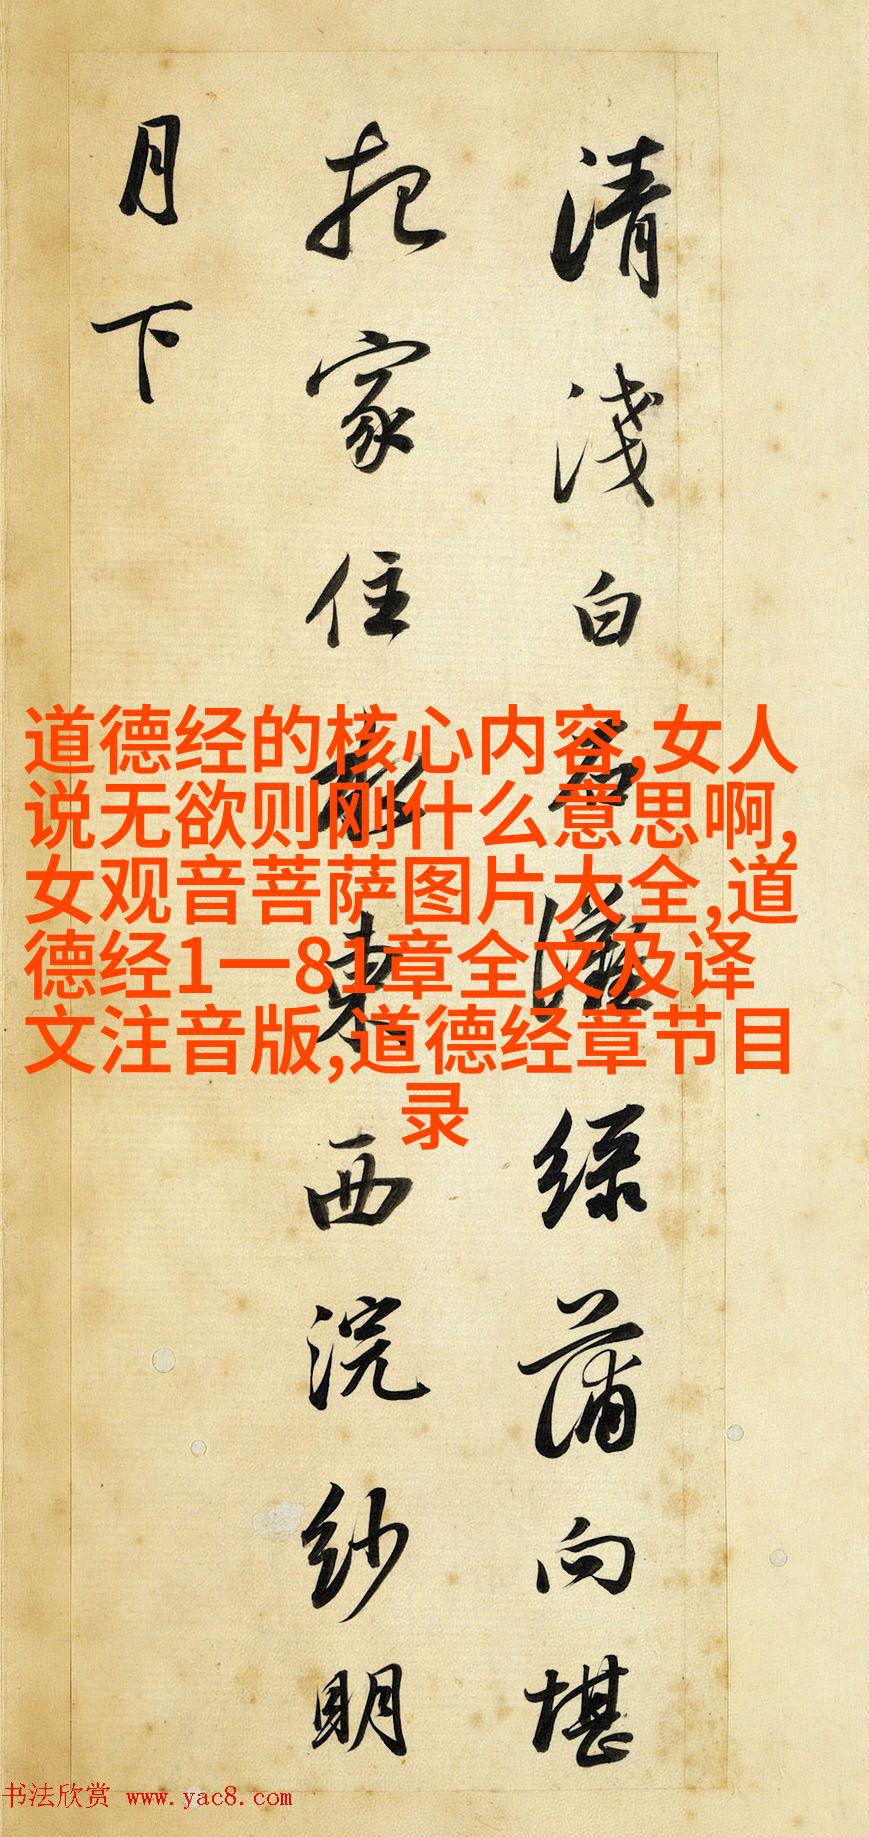 清淺白石灘綠蒲向堪
把家住水東西浣紗明
月下
道德经的核心内容,女人
说无欲则刚什么意思啊,
女观音菩萨图片大全,道
德经1一81章全文及译
文注音版,道德经章节目
录
书法欣赏 www.yac8.com